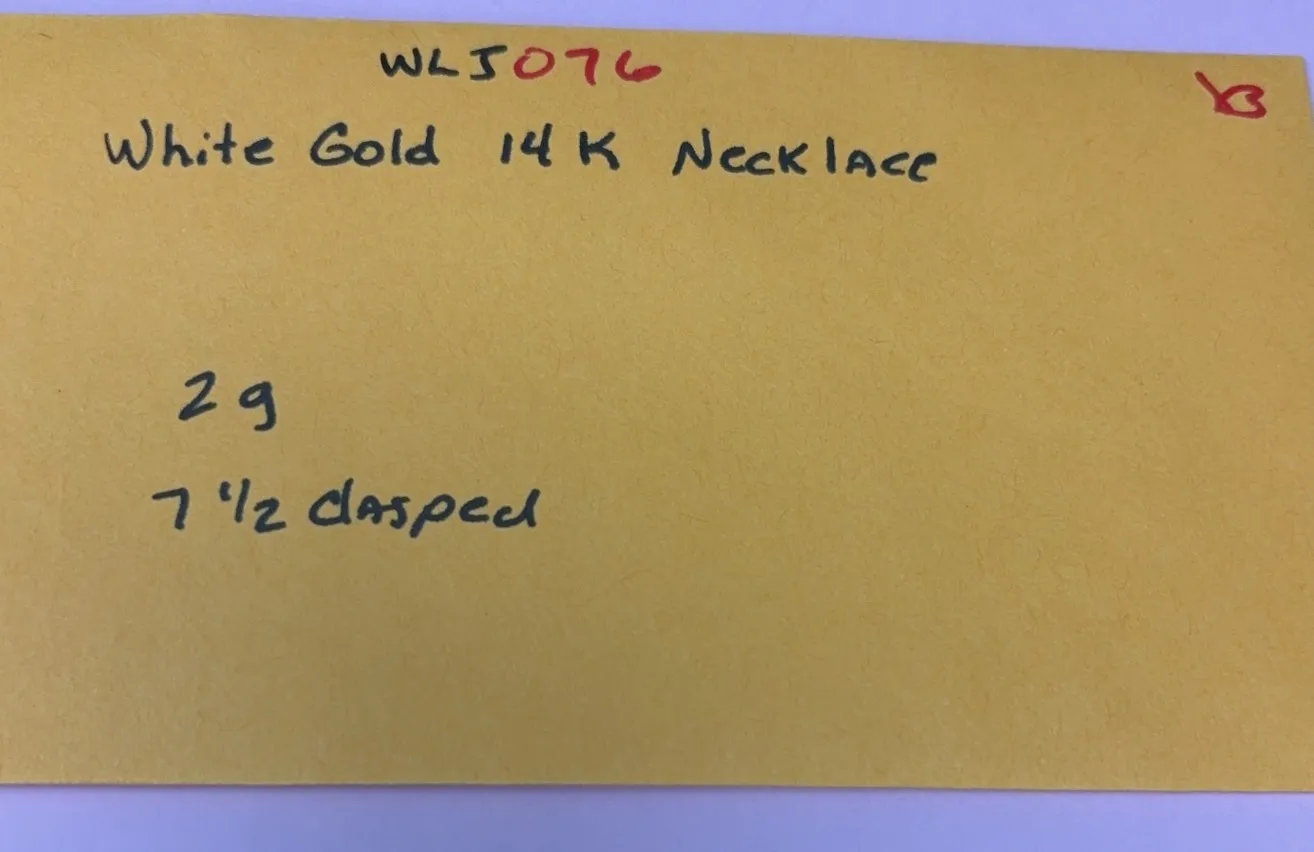 WLJ076
White Gold 14K Necklace
2g
7 1/2 clasped